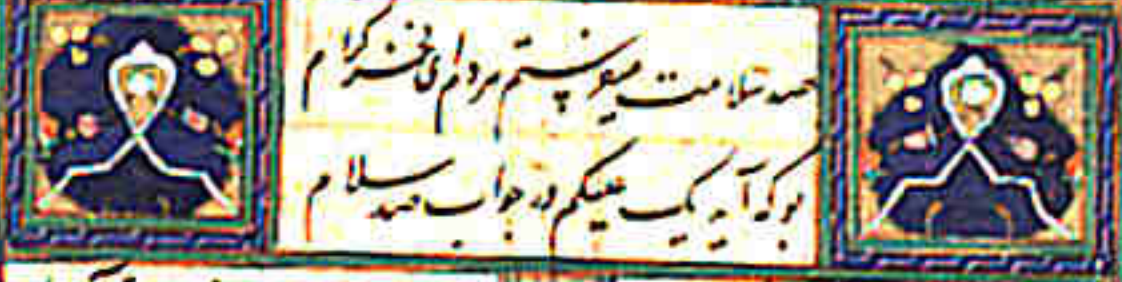 صد سلامت میفرستم هر دم ای فخر کرام
بو که آید یک علیکم در جواب صد سلام